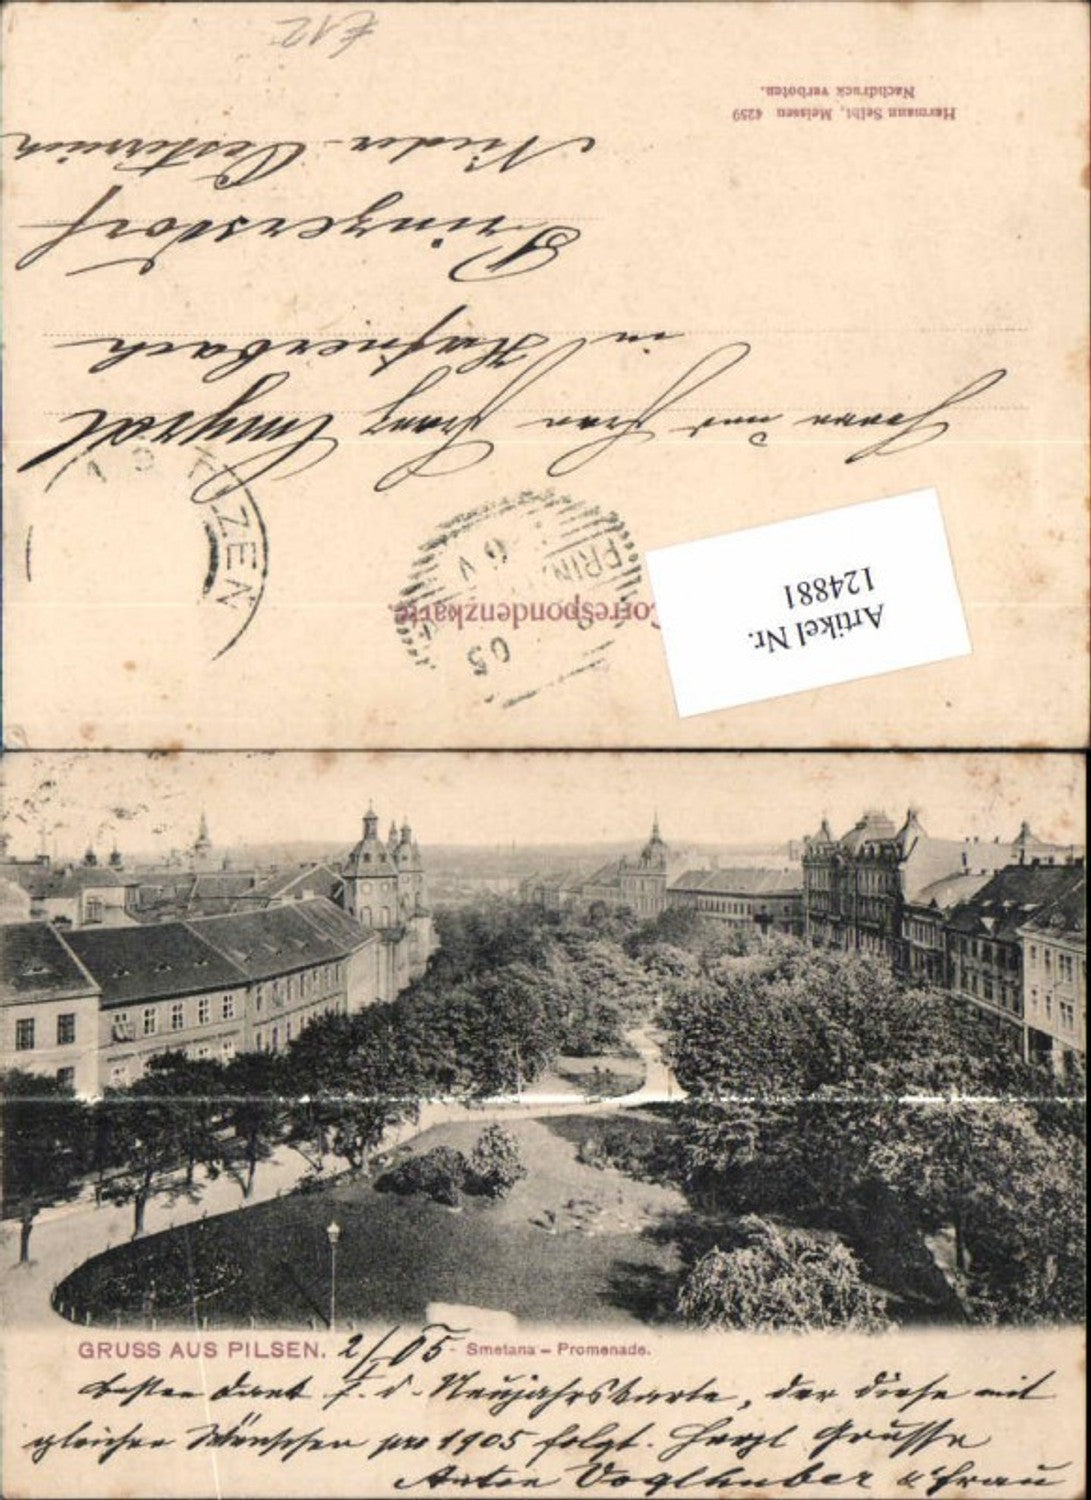 £12
Hermann Seibt, Meissen 4259
Nachdruck verboten.
Nieder-Oesterreich
Prinzersdorf
in Hafnerbach
Herrn und Frau Franz
Correspondenzkarte.
PRIN
05
ZEN
Artikel Nr.
124881
GRUSS AUS PILSEN. 2/1 05 Smetana - Promenade.
besten Dank f. d. Neujahrskarte, der diese mit
gleichen Wünschen pro 1905 folgt. Herzl Grüsse
Anton Voglhuber u Frau